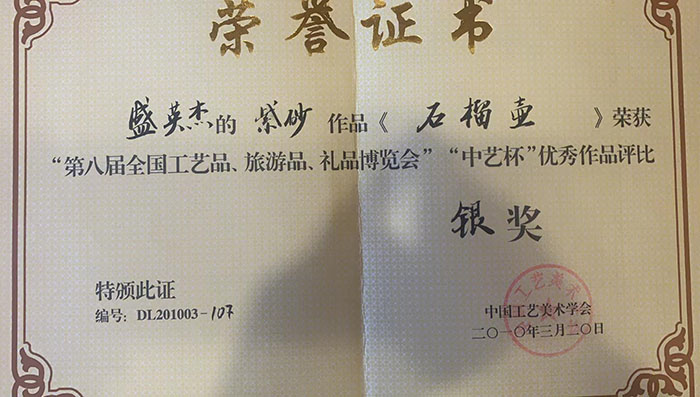 荣誉证书
盛英杰的 紫砂 作品《 石榴壶 》荣获
“第八届全国工艺品、旅游品、礼品博览会” “中艺杯”优秀作品评比
银奖
特颁此证
编号：DL201003-107
中国工艺美术学会
二〇一〇年三月二〇日